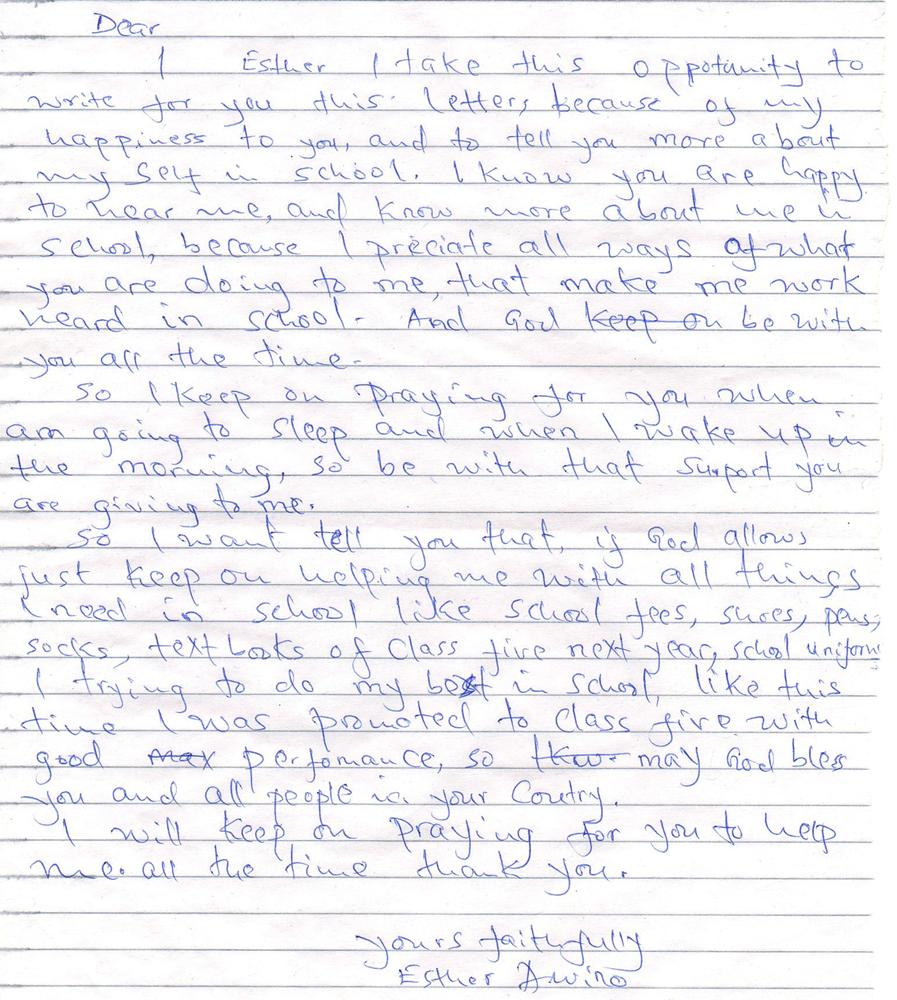 Dear
I Esther I take this oppotunity to
write for you this letters, because of my
happiness to you, and to tell you more about
my self in school. I know you are happy
to hear me, and know more about me in
school, because I preciate all ways of what
you are doing to me, that make me work
heard in school. And God keep on be with
you all the time.
So I keep on praying for you when
am going to sleep and when I wake up in
the morning, so be with that support you
are giving to me.
So I want tell you that, if God allows
just keep on helping me with all things
I need in school like school fees, shoes, pens,
socks, text books of class five next year, school uniform
I trying to do my best in school, like this
time I was promoted to class five with
good max perfomance, so may God bless
you and all people in your Coutry.
I will keep on praying for you to help
me. all the time thank you.
yours faithfully
Esther Awino